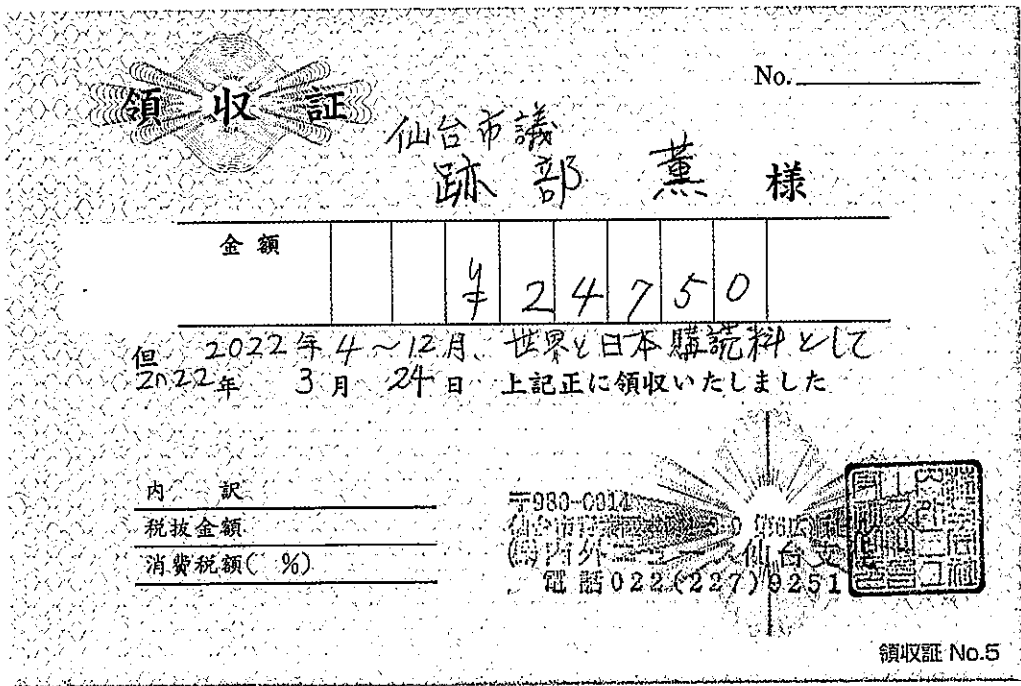 領収証
No.
仙台市議
跡部 薫 様
金額 ¥24750
但 2022年4~12月、世界と日本購読料として
2022年 3月 24日 上記正に領収いたしました
内 訳
税抜金額
消費税額( %)
〒980-0014
仙台市
内外ニュース仙台支
電話022(227)9251
領収証 No.5